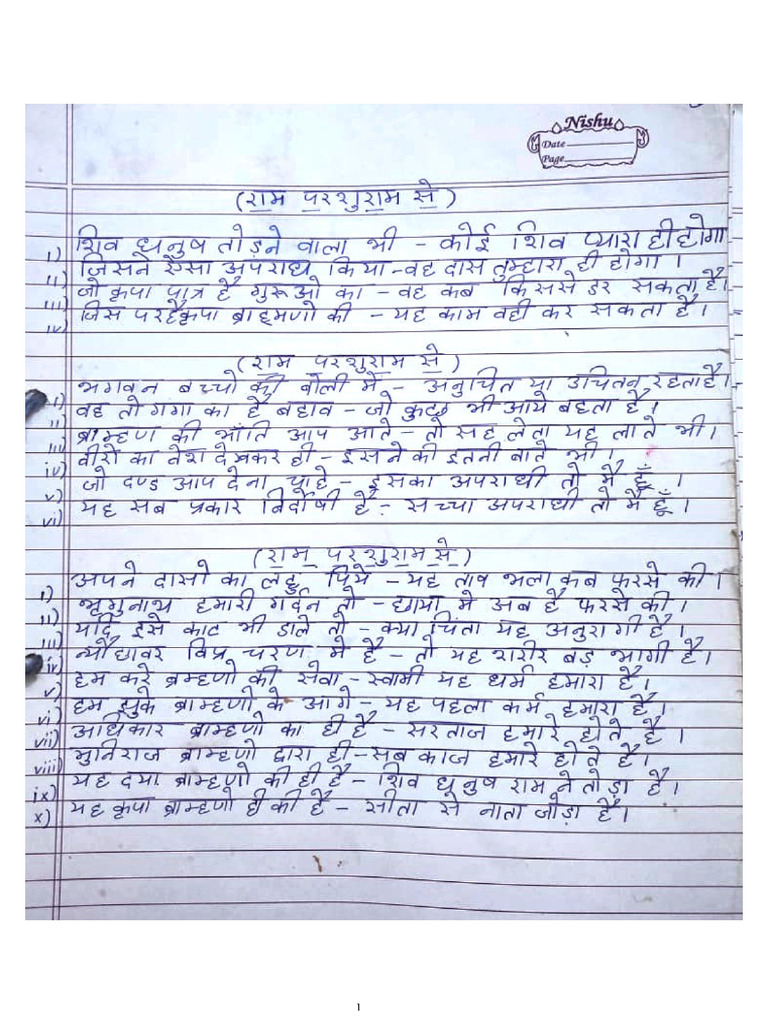 Nishu
Date
Page
(राम परशुराम से)
i) शिव धनुष तोड़ने वाला भी - कोई शिव प्यारा ही होगा
ii) जिसने ऐसा अपराध किया - वह दास तुम्हारा ही होगा ।
iii) जो कृपा पात्र है गुरूओ का - वह कब किससे डर सकता है।
iv) जिस पर है कृपा ब्राह्मणो की - यह काम वही कर सकता है।
(राम परशुराम से)
i) भगवन बच्चो की बोली में - अनुचित या उचित न रहता है।
ii) वह तो गंगा का है बहाव - जो कुछ भी आये बहता है ।
iii) ब्राम्हण की भाँति आप आते - तो सह लेता यह लाते भी ।
iv) वीरो का वेश देखकर ही - इसने की इतनी बाते भी ।
v) जो दण्ड आप देना चाहे - इसका अपराधी तो मैं हूँ ।
vi) यह सब प्रकार निर्दोषी है - सच्चा अपराधी तो मैं हूँ ।
(राम परशुराम से)
i) अपने दासो का लहु पिये - यह ताव भला कब फरसे की ।
ii) भृगुनाथ हमारी गर्दन तो - छाया मे अब है फरसे की ।
iii) यदि इसे काट भी डाले तो - क्या चिंता यह अनुरागी है ।
iv) न्यौछावर विप्र चरण में है - तो यह शरीर बड़ भागी है ।
v) हम करे ब्राम्हणो की सेवा - स्वामी यह धर्म हमारा है ।
vi) हम झुके ब्राम्हणो के आगे - यह पहला कर्म हमारा है ।
vii) अधिकार ब्राम्हणो का ही है - सरताज हमारे होते है ।
viii) मुनिराज ब्राम्हणो द्वारा ही - सब काज हमारे होते है ।
ix) यह दया ब्राम्हणो की ही है - शिव धनुष राम ने तोड़ा है ।
x) यह कृपा ब्राम्हणो ही की है - सीता से नाता जोड़ा है ।
1